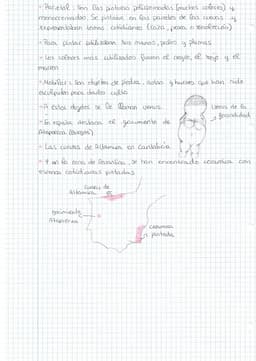 · Parietal: Son las pinturas policromadas (muchos colores) y
monocromadas. Se pintaba en las paredes de las cuevas y
representaban temas cotidianos (caza, pesca o recolección)
· Para pintar utilizaban las manos, palos y plumas
· Los colores más utilizados fueron el negro, el rojo y el
marrón
· Mobiliar: Son objetos de piedra, astas y huesos que han sido
esculpidos para darles culto
· A estos objetos se le llaman venus.
Venus de la
fecundidad
· En españa destaca el yacimiento de
Atapuerca (Burgos)
· Las cuevas de Altamira en cantabria
· Y en la zona de levantina, se han encontrado
escenas cotidianas pintadas
Cuevas de
Altamira
yacimiento
Atapuerca
pintada